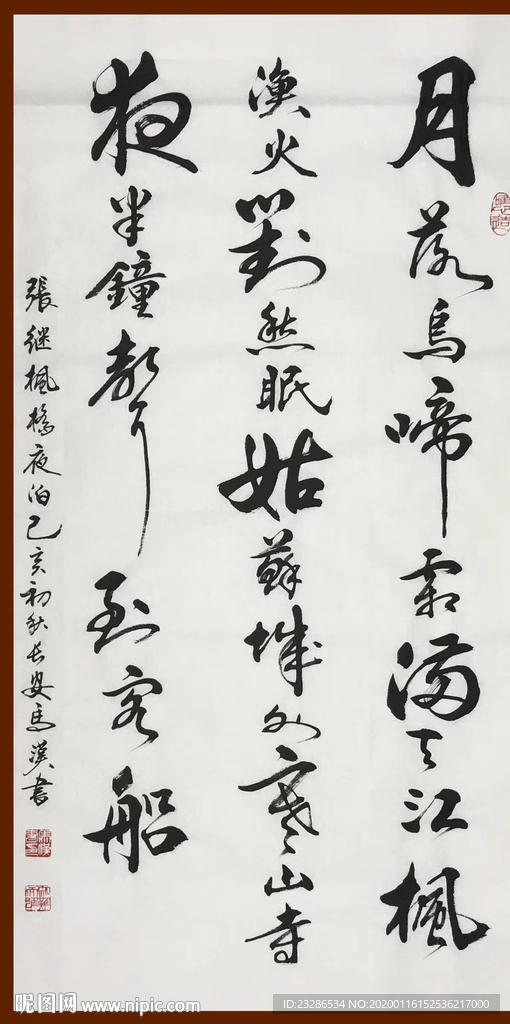 月落烏啼霜滿天江楓
漁火對然眠姑蘇城外寒山寺
夜半鐘聲到客船
張继楓橋夜泊己亥初秋長安馬漢書
昵图网 www.nipic.com
ID:23286534 NO:20200116152536217000